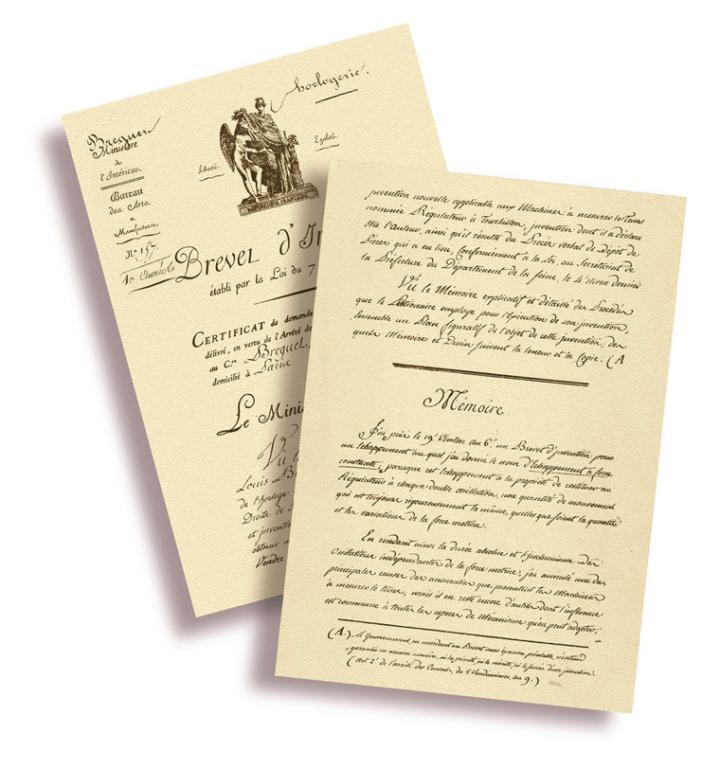 horlogerie.
Breguet
Ministère
de
l'Intérieur.
Bureau
des Arts
et
Manufactures
N.º 157.
Liberté.
Egalité.
REPUBLIQUE FRANÇAISE
Brevet d'In
établi par la Loi du 7
CERTIFICAT de demande
délivré, en vertu de l'Arrêté de
au C.en Breguet,
domicilié à Paris
Le Minis
Vu le
Louis B
de l'horloge
Droite de
et
obtenir
Vendre
invention nouvelle applicable aux Machines à mesurer le tems
nommée Régulateur à Tourbillon, invention dont il a déclaré
être l'auteur, ainsi qu'il résulte du Procès verbal de Dépôt de
Pièces qui a eu lieu, Conformément à la Loi, au Secrétariat de
la Préfecture du Département de la Seine, le
Vu le Mémoire explicatif et détaillé des Procédés
que le Pétitionnaire employe pour l'exécution de son invention,
Ensemble un Plan figuratif de l'objet de cette invention, des
quels Mémoire et Dessin suivent la teneur et la Copie. (A
Mémoire.
J'ai pris le 19 Ventose an 6.e un Brevet d'invention pour
un Echappement auquel j'ai donné le nom d'Echappement à force
constante, parceque cet Echappement a la propriété de restituer au
Régulateur à chaque double oscillation, une quantité de mouvement
qui est toujours rigoureusement la même, quelles que soient la quantité
et les variations de la force motrice.
En rendant ainsi la durée absolue et l'Isochronisme des
Oscillations indépendantes de la force motrice; j'ai annulé une des
principales causes des anomalies que présentent les Machines
à mesurer le tems, mais il en reste encore d'autres dont l'influence
est commune à toutes les espèces de Mécanismes qu'on peut adopter.
(A). Le Gouvernement, en accordant un Brevet sans examen préalable, n'entend
garantir en aucune manière, ni la priorité, ni le mérite, ni le succès d'une invention.
(Art. 2.e de l'arrêté des Consuls, du 5 Vendémiaire, an 9.)